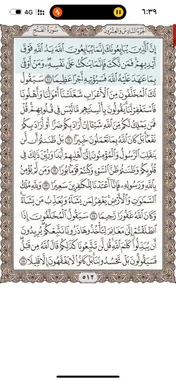 ٦:٣٩
الجزء السادس والعشرون سورة الفتح
إِنَّ ٱلَّذِينَ يُبَايِعُونَكَ إِنَّمَا يُبَايِعُونَ ٱللَّهَ يَدُ ٱللَّهِ فَوْقَ
أَيْدِيهِمْ فَمَن نَّكَثَ فَإِنَّمَا يَنكُثُ عَلَىٰ نَفْسِهِۦ وَمَنْ أَوْفَىٰ
بِمَا عَٰهَدَ عَلَيْهُ ٱللَّهَ فَسَيُؤْتِيهِ أَجْرًا عَظِيمًا ١٠ سَيَقُولُ
لَكَ ٱلْمُخَلَّفُونَ مِنَ ٱلْأَعْرَابِ شَغَلَتْنَآ أَمْوَٰلُنَا وَأَهْلُونَا
فَٱسْتَغْفِرْ لَنَا يَقُولُونَ بِأَلْسِنَتِهِم مَّا لَيْسَ فِى قُلُوبِهِمْ قُلْ
فَمَن يَمْلِكُ لَكُم مِّنَ ٱللَّهِ شَيْـًٔا إِنْ أَرَادَ بِكُمْ ضَرًّا أَوْ أَرَادَ بِكُمْ
نَفْعًۢا بَلْ كَانَ ٱللَّهُ بِمَا تَعْمَلُونَ خَبِيرًۢا ١١ بَلْ ظَنَنتُمْ أَن لَّن
يَنقَلِبَ ٱلرَّسُولُ وَٱلْمُؤْمِنُونَ إِلَىٰٓ أَهْلِيهِمْ أَبَدًا وَزُيِّنَ ذَٰلِكَ فِى
قُلُوبِكُمْ وَظَنَنتُمْ ظَنَّ ٱلسَّوْءِ وَكُنتُمْ قَوْمًۢا بُورًا ١٢ وَمَن لَّمْ يُؤْمِنۢ
بِٱللَّهِ وَرَسُولِهِۦ فَإِنَّآ أَعْتَدْنَا لِلْكَٰفِرِينَ سَعِيرًا ١٣ وَلِلَّهِ مُلْكُ
ٱلسَّمَٰوَٰتِ وَٱلْأَرْضِ يَغْفِرُ لِمَن يَشَآءُ وَيُعَذِّبُ مَن يَشَآءُ
وَكَانَ ٱللَّهُ غَفُورًا رَّحِيمًا ١٤ سَيَقُولُ ٱلْمُخَلَّفُونَ إِذَا
ٱنطَلَقْتُمْ إِلَىٰ مَغَانِمَ لِتَأْخُذُوهَا ذَرُونَا نَتَّبِعْكُمْ يُرِيدُونَ
أَن يُبَدِّلُوا۟ كَلَٰمَ ٱللَّهِ قُل لَّن تَتَّبِعُونَا كَذَٰلِكُمْ قَالَ ٱللَّهُ مِن قَبْلُ
فَسَيَقُولُونَ بَلْ تَحْسُدُونَنَا بَلْ كَانُوا۟ لَا يَفْقَهُونَ إِلَّا قَلِيلًا ١٥
٥١٢